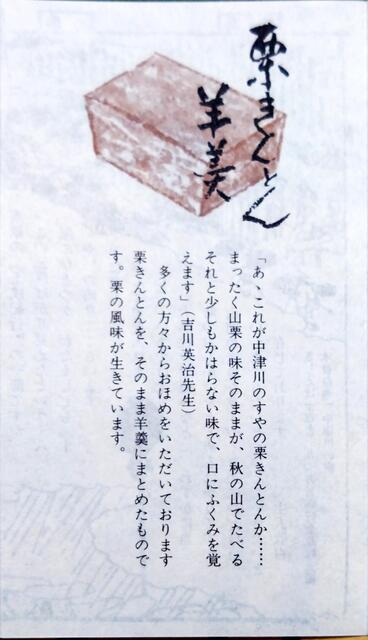 栗きんとん
羊羹
「あゝこれが中津川のすやの栗きんとんか……
まったく山栗の味そのままが、秋の山でたべる
それと少しもかはらない味で、口にふくみを覚
えます」(吉川英治先生)
多くの方々からおほめをいただいております
栗きんとんを、そのまま羊羹にまとめたもので
す。栗の風味が生きています。